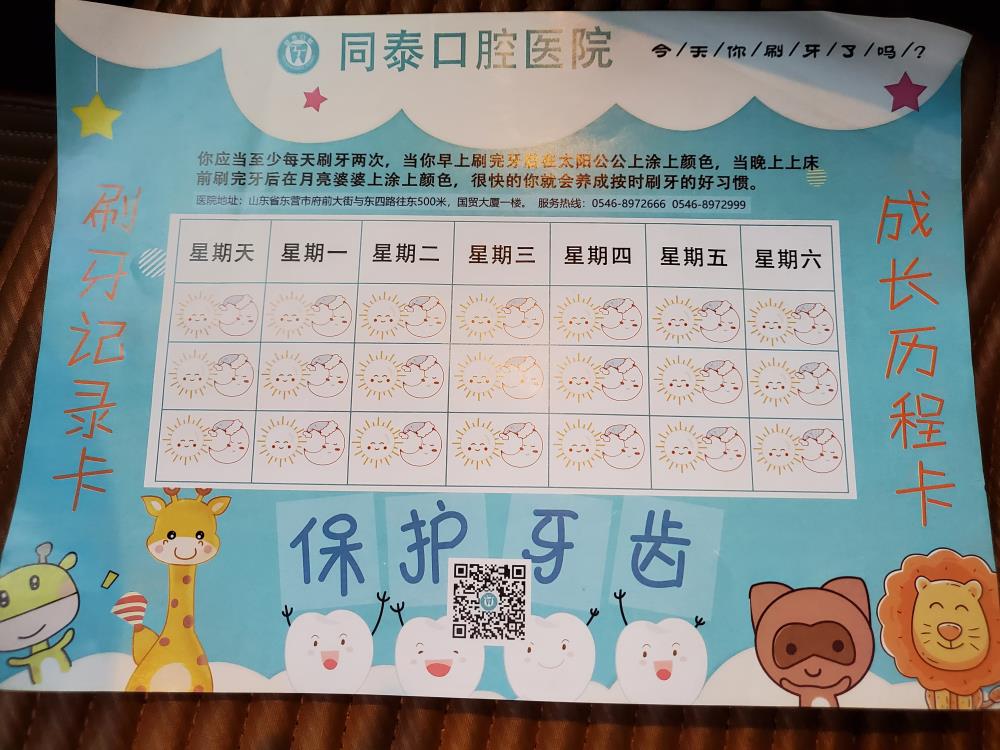 同泰口腔医院
今/天/你/刷/牙/了/吗/?
你应当至少每天刷牙两次，当你早上刷完牙后在太阳公公上涂上颜色，当晚上上床
前刷完牙后在月亮婆婆上涂上颜色，很快的你就会养成按时刷牙的好习惯。
医院地址：山东省东营市府前大街与东四路往东500米，国贸大厦一楼。 服务热线：0546-8972666 0546-8972999
刷牙记录卡
星期天 星期一 星期二 星期三 星期四 星期五 星期六
成长历程卡
保护牙齿